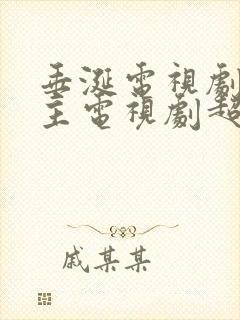 垂涎電視劇
主電視劇超
戚某某